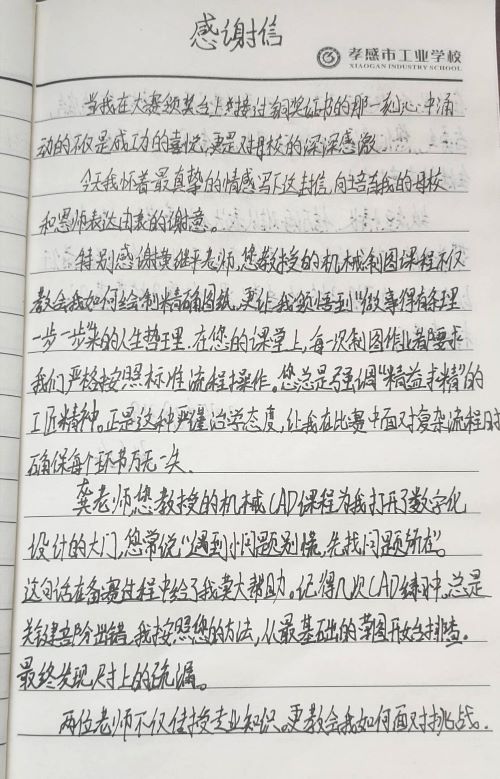 感谢信
孝感市工业学校
XIAOGAN INDUSTRY SCHOOL
当我在大赛颁奖台上接过铜奖证书的那一刻,心中涌
动的不仅是成功的喜悦,更是对母校的深深感激.
今天我怀着最真挚的情感写下这封信,向培育我的母校
和恩师表达由衷的谢意。
特别感谢黄继平老师,您教授的机械制图课程不仅
教会我如何绘制精确图纸,更让我领悟到"做事得有条理
一步一步来的人生哲理.在您的课堂上,每一次制图作业都要求
我们严格按照标准流程操作。您总是强调"精益求精"的
工匠精神。正是这种严谨治学态度,让我在比赛中面对复杂流程时
确保每个环节万无一失.
龚老师,您教授的机械CAD课程为我打开了数字化
设计的大门,您常说"遇到问题别慌,先找问题所在"。
这句话在备赛过程中给了我莫大帮助。记得几次CAD练习中,总是
关键部分出错,我按照您的方法,从最基础的草图开始排查.
最终发现尺寸上的疏漏。
两位老师不仅传授专业知识。更教会我如何面对挑战.